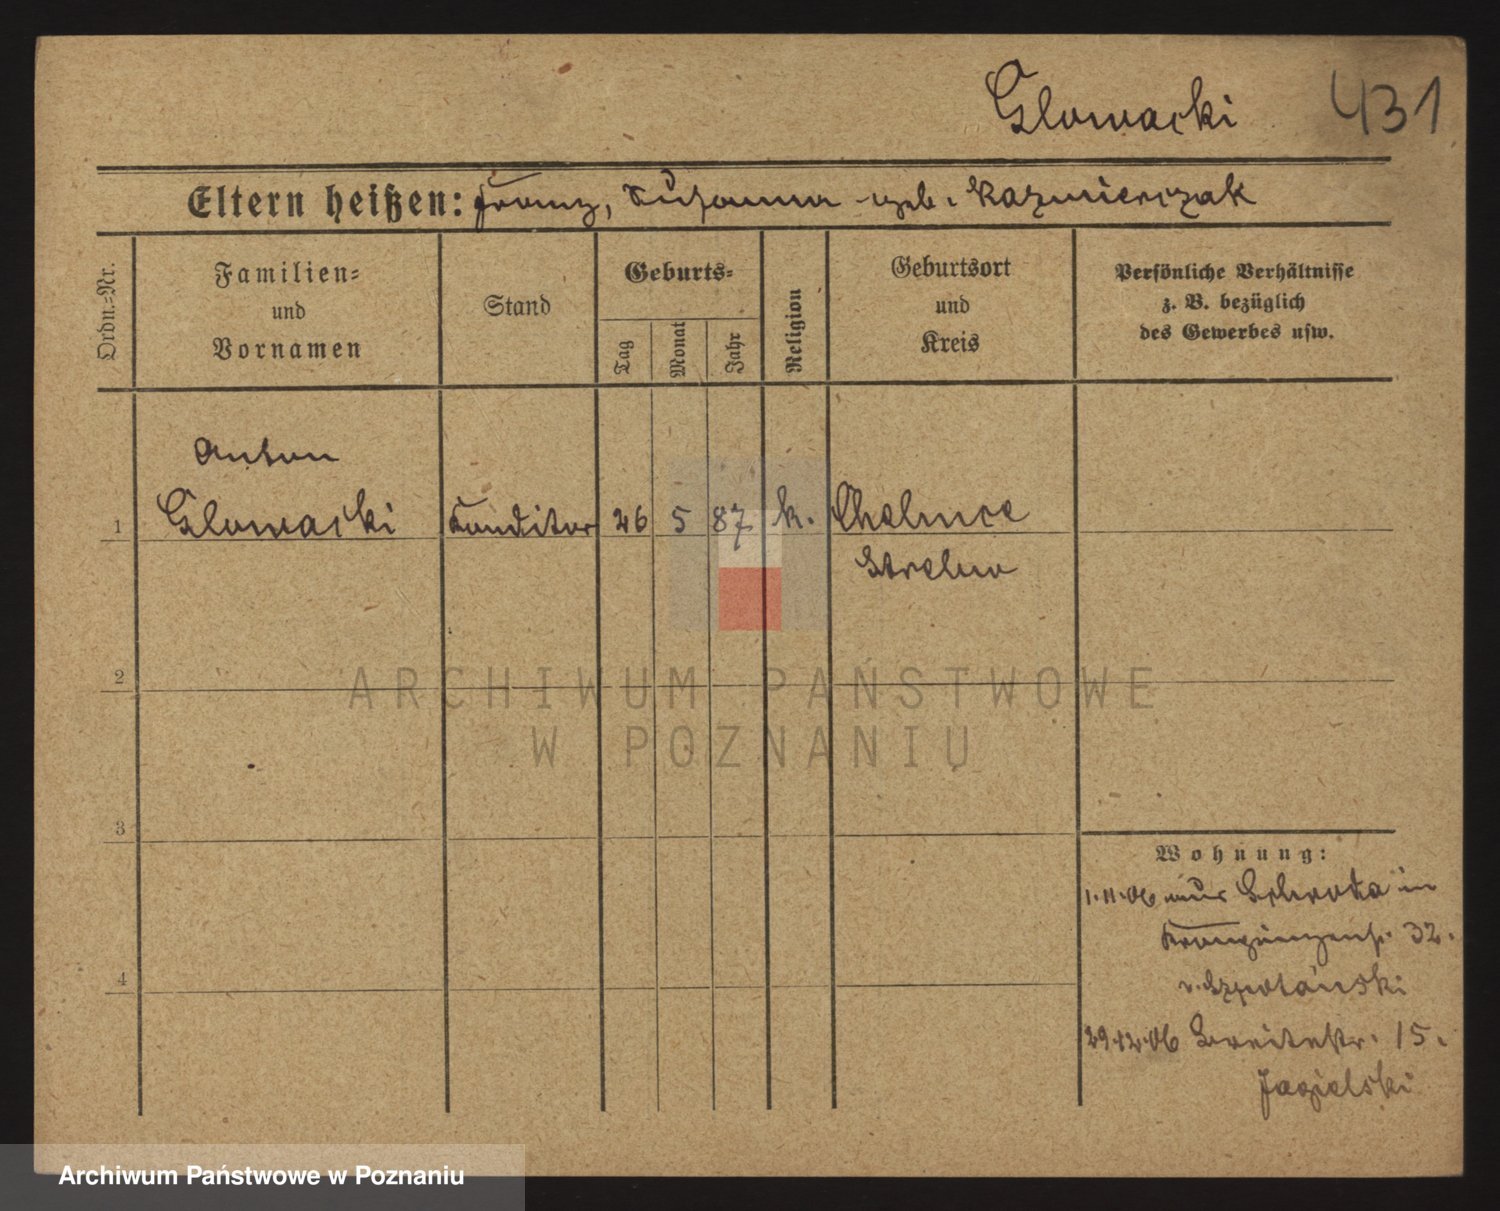 Glowacki 431
Eltern heißen: Franz, Susanna geb. Kazmierczak
Ordn.=Nr.
Familien=
und
Vornamen
Stand
Geburts=
Tag
Monat
Jahr
Religion
Geburtsort
und
Kreis
Persönliche Verhältnisse
z. B. bezüglich
des Gewerbes usw.
Anton
1 Glowacki Konditor 26 5 87 k. Chelmce
Strelno
2
ARCHIWUM PAŃSTWOWE
W POZNANIU
3
Wohnung:
1.11.06 aus Schroda in
32.
v. Szpotański
4
29.12.06 Breitestr. 15.
Jagielski
Archiwum Państwowe w Poznaniu